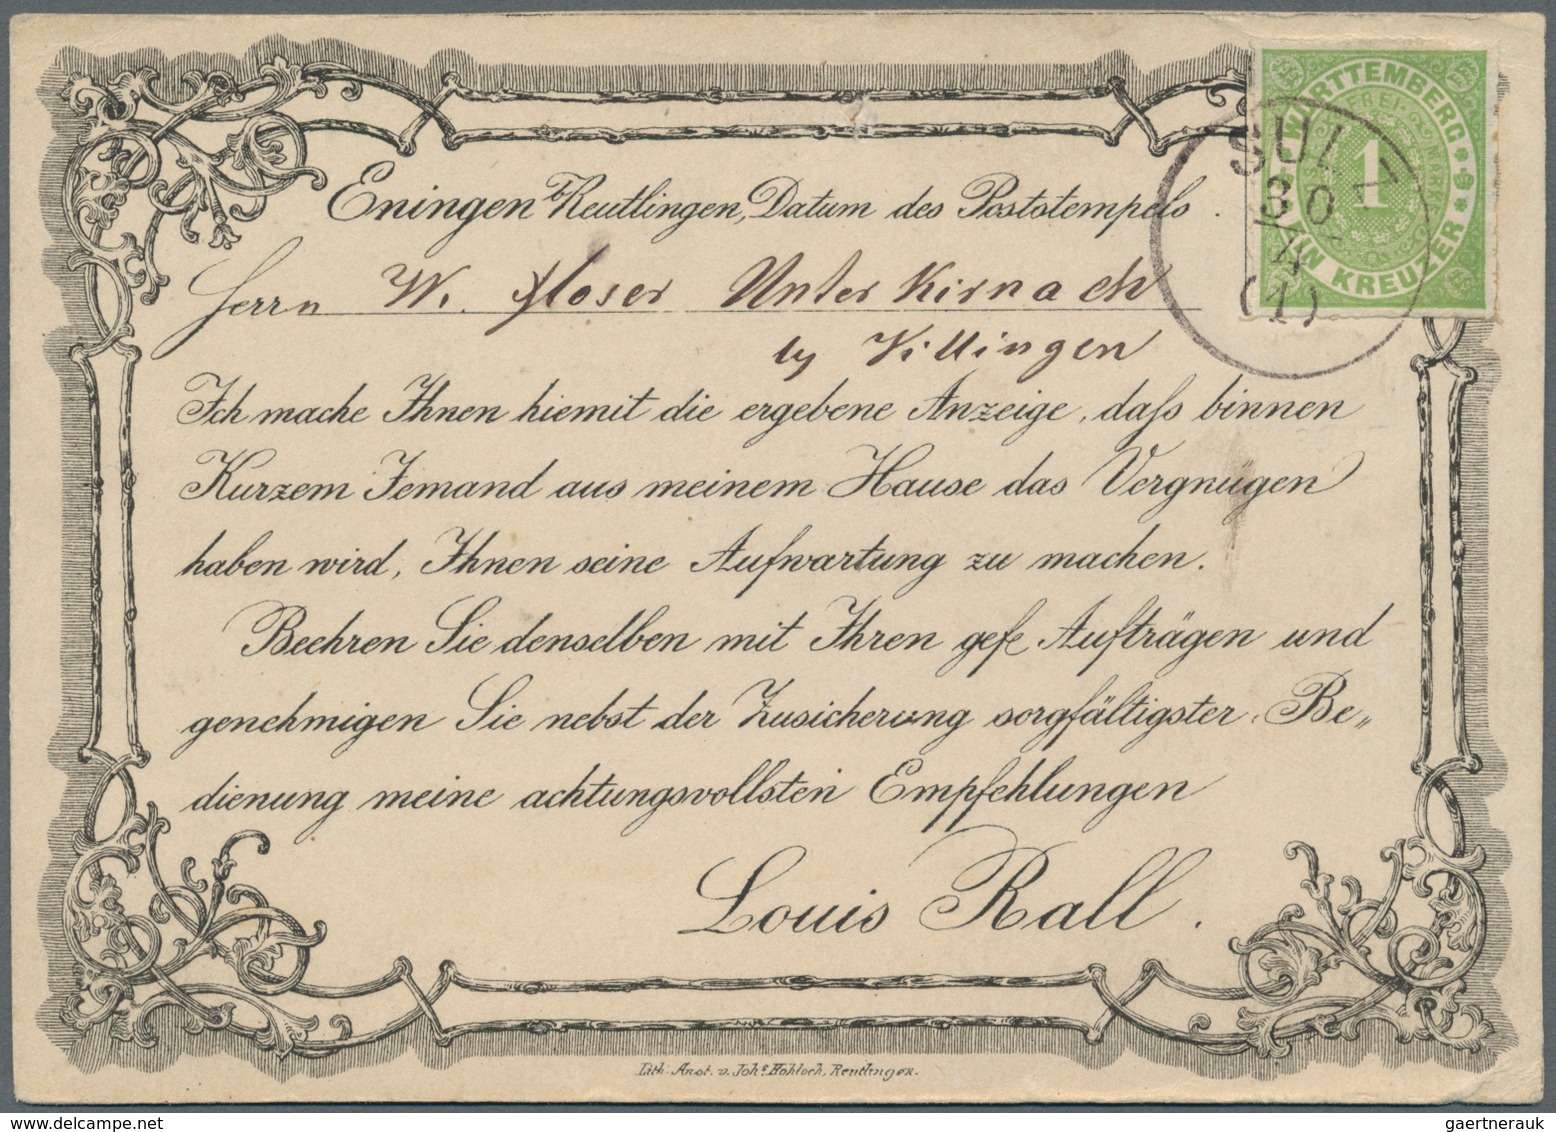 WÜRTTEMBERG
FREI-MARKE
1
EIN KREUZER
SULZ
30
4
(1)
Eningen b/Reutlingen, Datum des Poststempels.
Herrn W. Moser Unter Kirnach
by Villingen
Ich mache Ihnen hiemit die ergebene Anzeige, daſs binnen
Kurzem Jemand aus meinem Hause das Vergnügen
haben wird, Ihnen seine Aufwartung zu machen.
Beehren Sie denselben mit Ihren gefe Aufträgen und
genehmigen Sie nebst der Zusicherung sorgfältigster Be„
dienung meine achtungsvollsten Empfehlungen
Louis Rall.
Lith: Anst. v. Johs Hohloch, Reutlingen.
gaertnerauk @ delcampe.net